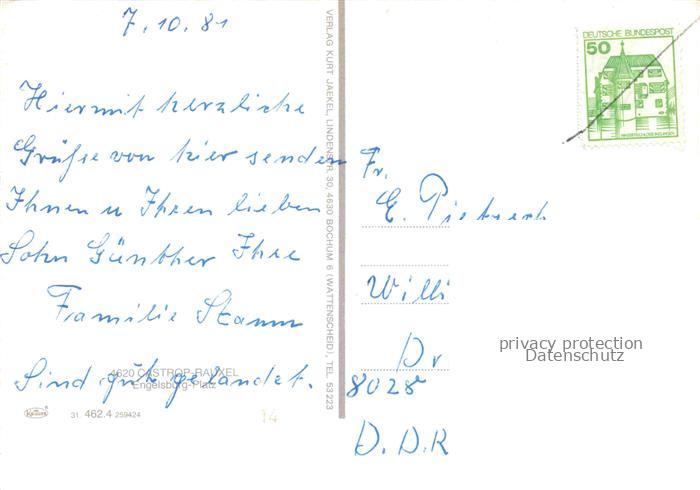 7.10.81
Hiermit herzliche
Grüße von hier senden
Ihnen u Ihren lieben
Sohn Günther Ihre
Familie Stamm
Sind gut gelandet.
4620 CASTROP-RAUXEL
Engelsburg-Platz
Krüger 31. 462.4 259424
14
VERLAG KURT JAEKEL, LINDENSTR. 30, 4630 BOCHUM 6 (WATTENSCHEID), TEL. 53 223
DEUTSCHE BUNDESPOST
50
WASSERSCHLOSS INZLINGEN
Fr.
E.
Willi
Dr
8028
D.D.R
privacy protection
Datenschutz